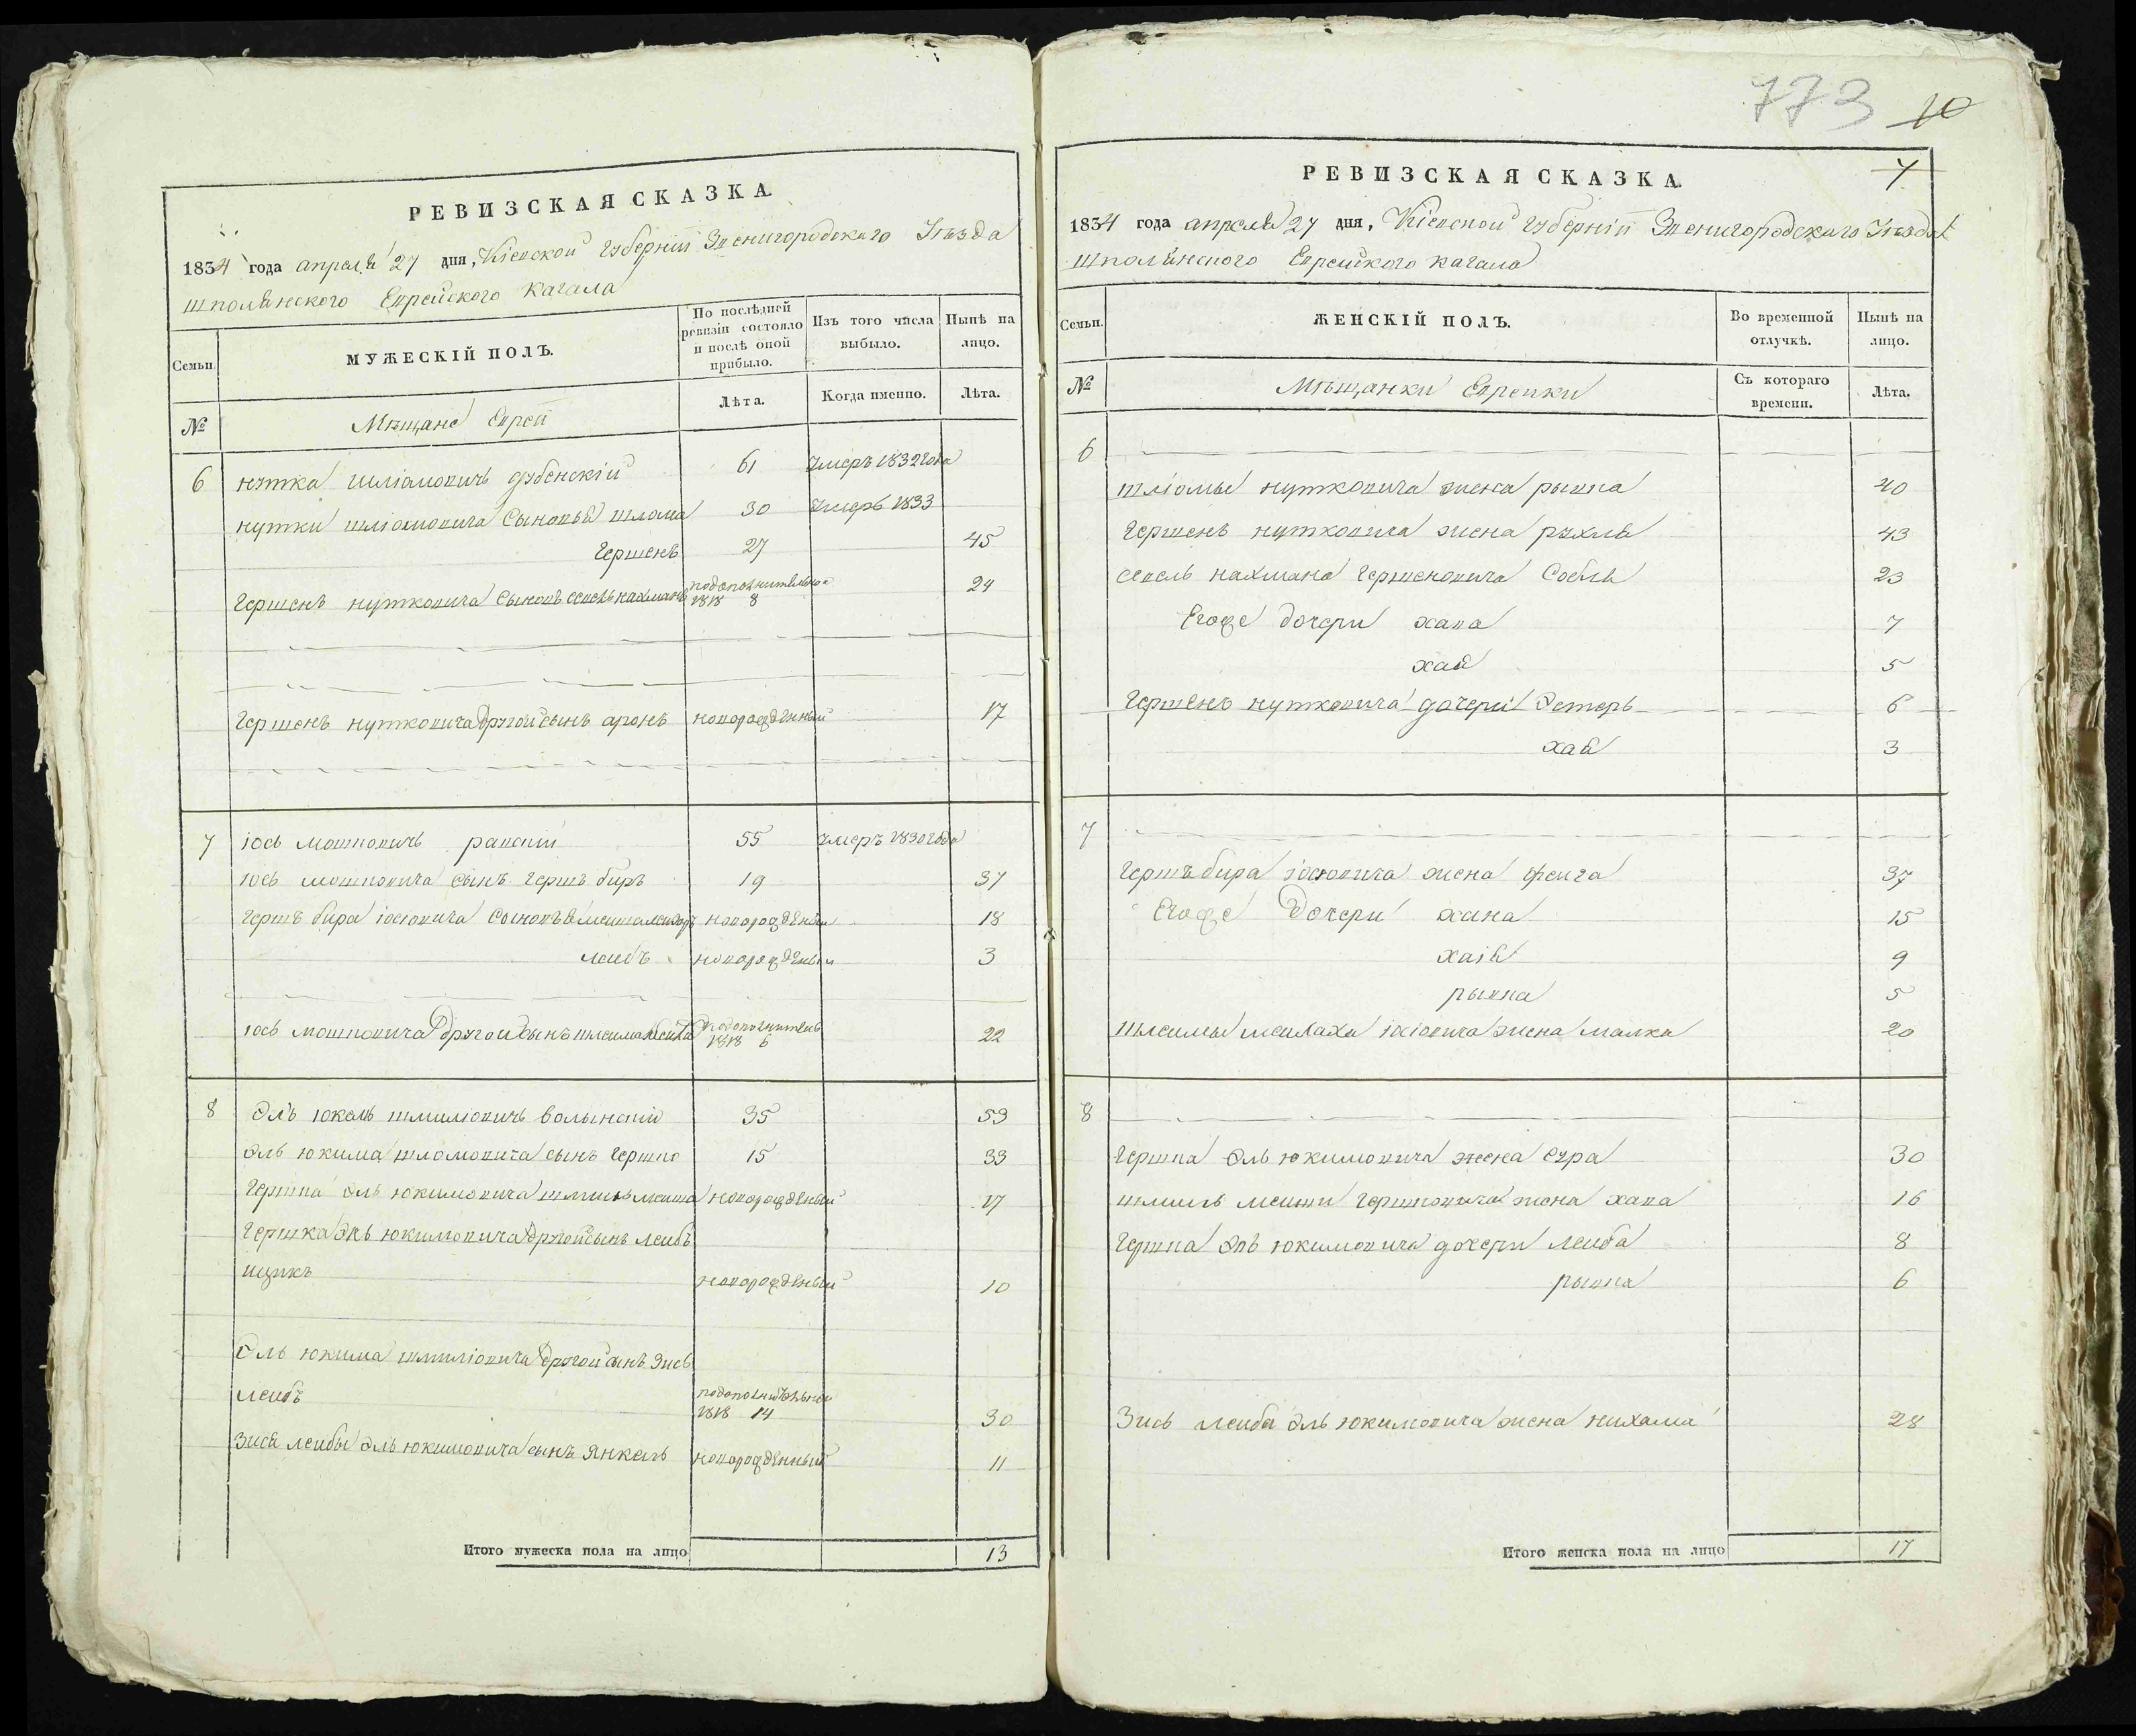 РЕВИЗСКАЯ СКАЗКА.
1834 года апреля 27 дня, Кіевской губерніи Звенигородского Уѣзда
шполянского Еврейского кагала
Семьи.
МУЖЕСКІЙ ПОЛЪ.
По послѣдней ревизіи состояло и послѣ оной прибыло.
Изъ того числа выбыло.
Нынѣ на лицо.
№
Мѣщане Евреи
Лѣта.
Когда именно.
Лѣта.
6 нутка шліомовичъ дубенскій 61 умеръ 1832 года
нутки шліомовича сыновья шлома 30 умеръ 1833
Гершенъ 27 45
Гершенъ нутковича сыновъ севель нахманъ подополнительной 1818 8 24
Гершенъ нутковича другой сынъ аронъ новорожденный 17
7 іось мошковичъ равскій 55 умеръ 1830 года
іось мошковича сынъ гершъ биръ 19 37
Гершъ бира іосіовича сыновъя новорожденый 18
лейбъ новорожденый 3
іось мошковича другой сынъ подополнитель 1818 6 22
8 Эль юкель шмиліовичъ волынскій 35 59
Эль юкима шломовича сынъ Гершко 15 33
Гершка эль юкимовича шмиль меиша новорожденый 17
Гершка эль юкимовича другой сынъ лейбъ
ицикъ новорожденый 10
Эль юкима шмиліовича другой сынъ Зись
лейбъ подополнительной 1818 14 30
Зися лейбы эль юкимовича сынъ янкель новорожденный 11
Итого мужеска пола на лицо 13
773 10
7
РЕВИЗСКАЯ СКАЗКА.
1834 года апреля 27 дня, Кіевской губерніи Звенигородскаго Уѣзда
шполянского Еврейского кагала
Семьи.
ЖЕНСКІЙ ПОЛЪ.
Во временной отлучкѣ.
Нынѣ на лицо.
№
Мѣщанки Еврейки
Съ котораго времени.
Лѣта.
6
шліомы нутковича жена рывка 40
Гершенъ нутковича жена рухля 43
севель нахмана Гершеновича Собля 23
Егоже дочери хава 7
хая 5
Гершенъ нутковича дочери Эстеръ 6
хая 3
7
Гершъ бира іосіовича жена фейга 37
Егоже дочери хана 15
хаія 9
рывка 5
шлеймы меилаха іосіовича жена малка 20
8
Гершка эль юкимовича жена сура 30
шмиль меиши Гершковича жена хава 16
Гершка эль юкимовича дочери лейба 8
рывка 6
Зись лейба эль юкимовича жена нихама 28
Итого женска пола на лицо 17